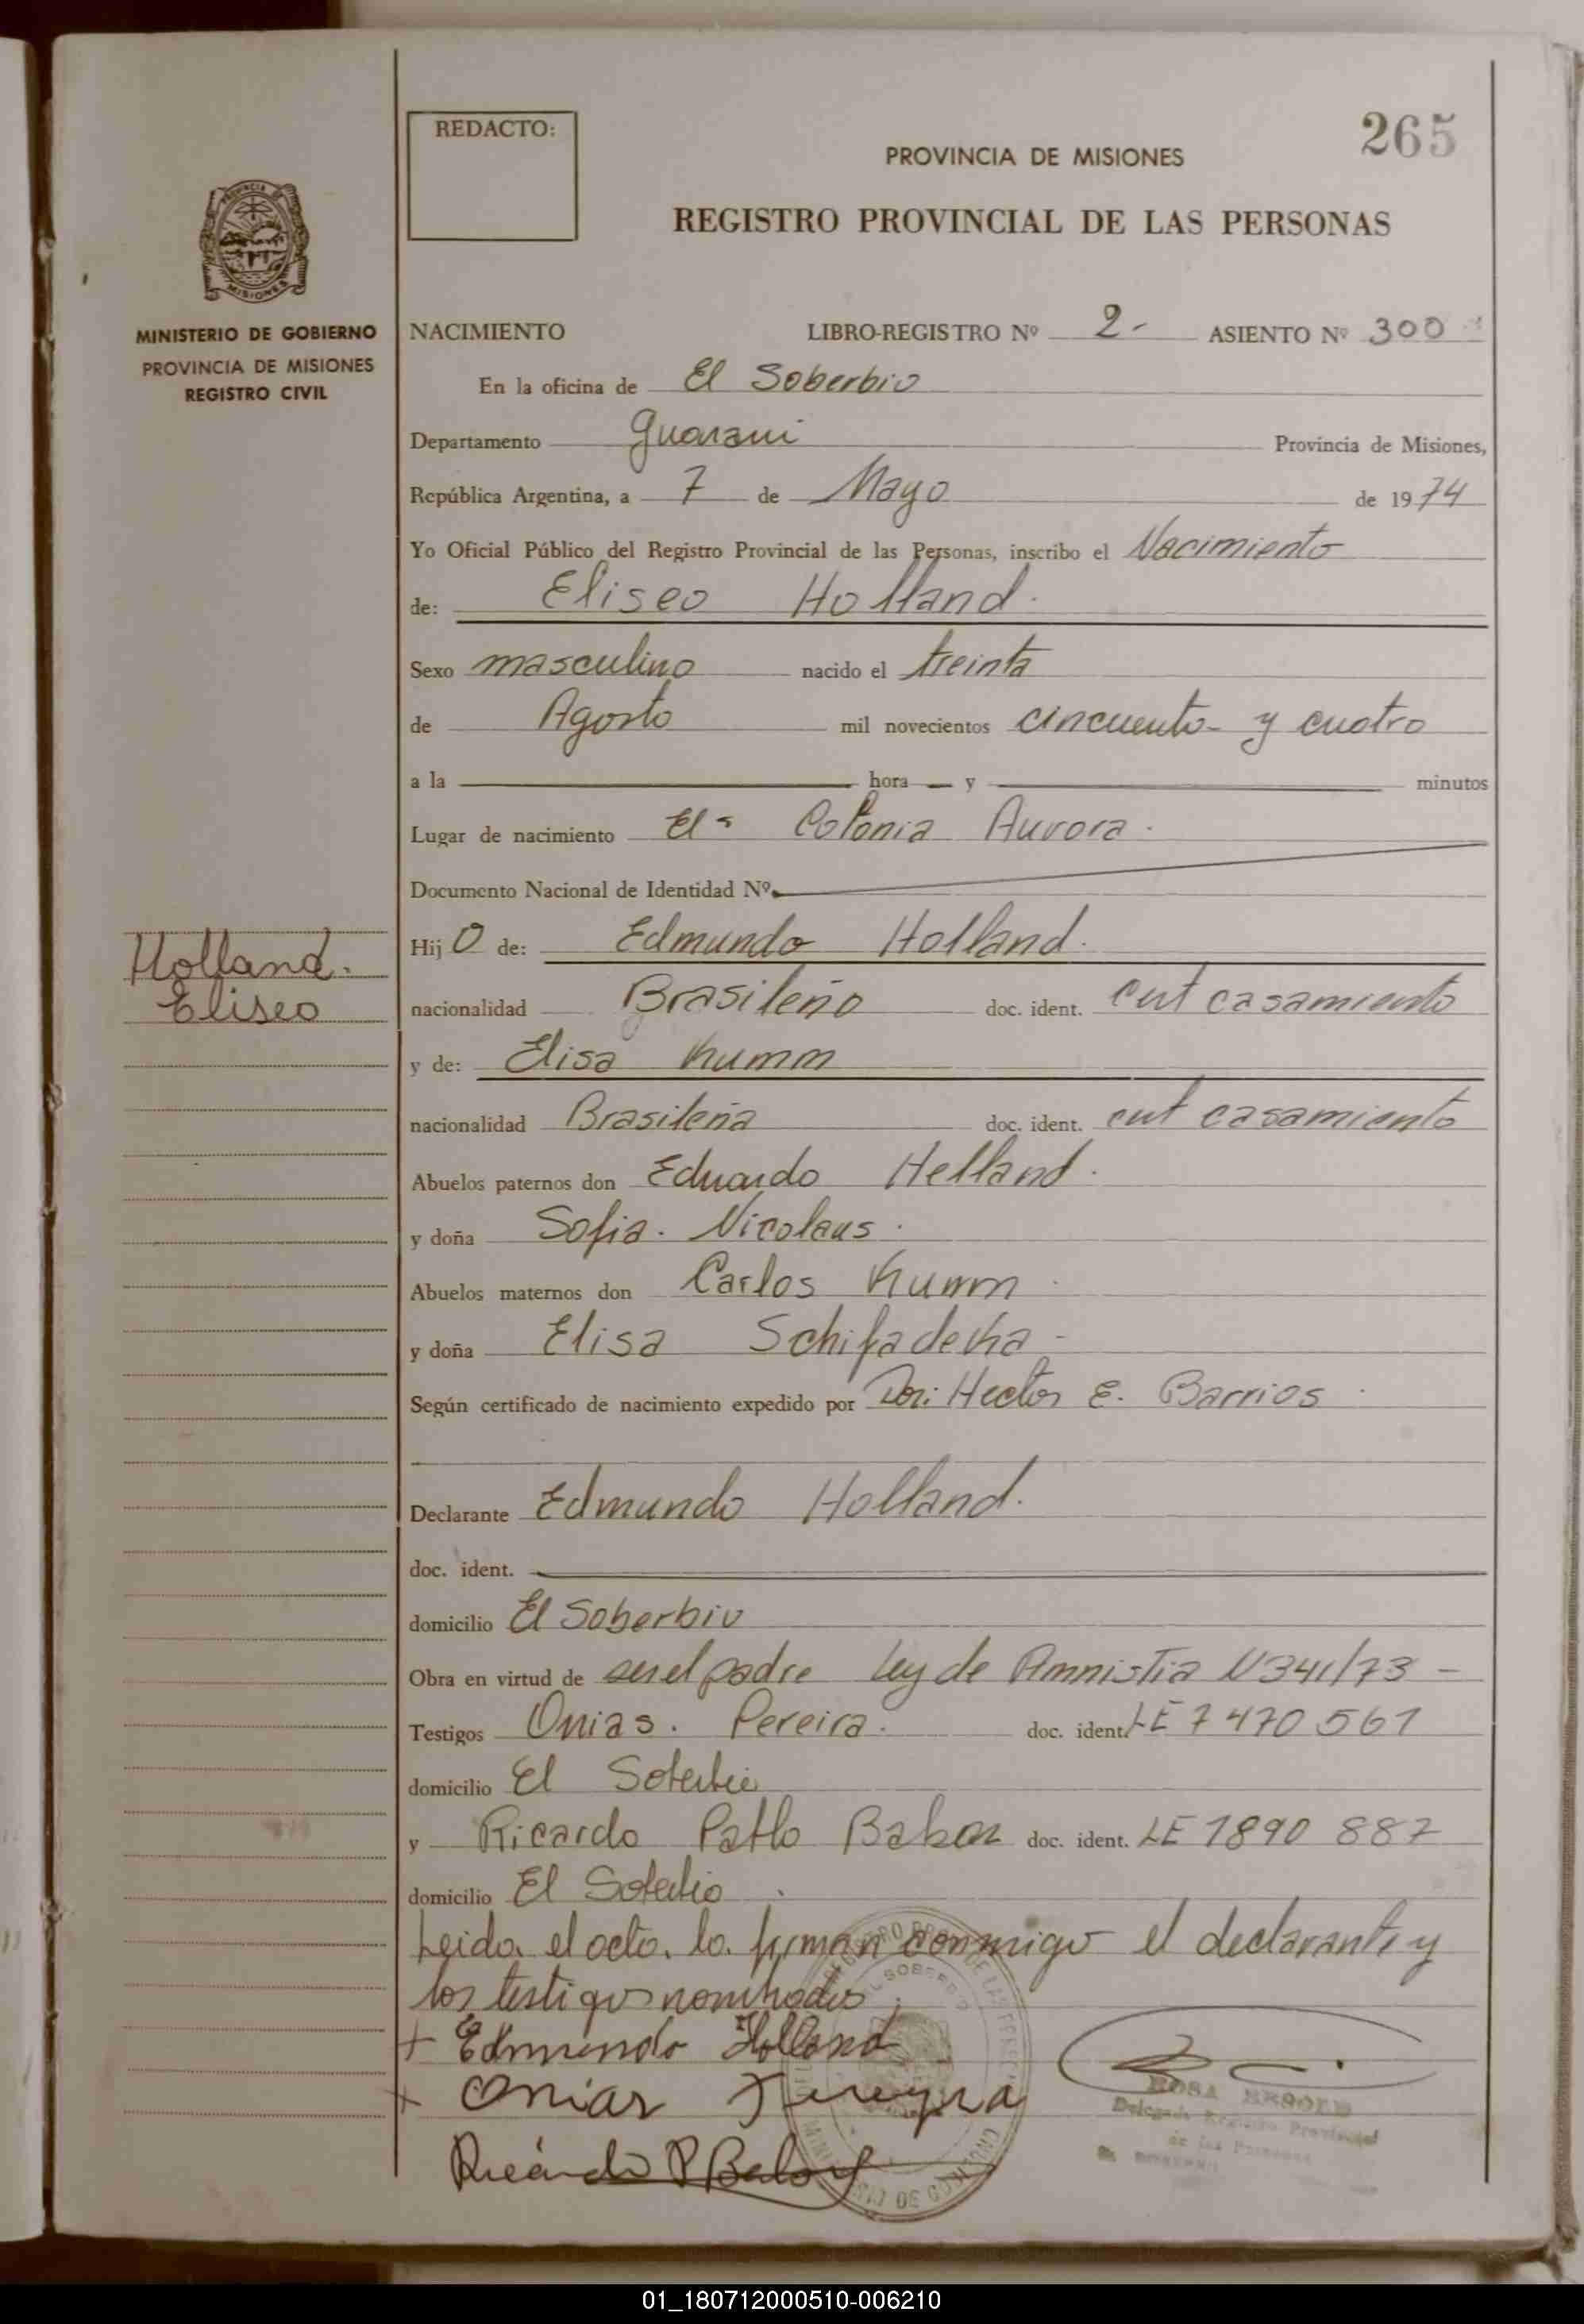 265
REDACTO:
PROVINCIA DE MISIONES
REGISTRO PROVINCIAL DE LAS PERSONAS
MISIONES
MINISTERIO DE GOBIERNO
PROVINCIA DE MISIONES
REGISTRO CIVIL
NACIMIENTO LIBRO-REGISTRO Nº 2- ASIENTO Nº 300
En la oficina de El Soberbio
Departamento Guarani Provincia de Misiones,
República Argentina, a 7 de Mayo de 1974
Yo Oficial Público del Registro Provincial de las Personas, inscribo el Nacimiento
de: Eliseo Holland.
Sexo masculino nacido el treinta
de Agosto mil novecientos cincuenta y cuatro
a la hora y minutos
Lugar de nacimiento El- Colonia Aurora.
Documento Nacional de Identidad Nº
Holland.
Eliseo
Hijo de: Edmundo Holland.
nacionalidad Brasileño doc. ident. cert casamiento
y de: Elisa Kumm
nacionalidad Brasileña doc. ident. cert casamiento
Abuelos paternos don Eduardo Helland.
y doña Sofia. Nicolaus.
Abuelos maternos don Carlos Kumm
y doña Elisa Schifadeka-
Según certificado de nacimiento expedido por Dor: Hector E. Barrios
Declarante Edmundo Holland.
doc. ident.
domicilio El Soberbio
Obra en virtud de ser el padre Ley de Amnistia N 341/73 -
Testigos Onias. Pereira. doc. ident. LE 7470561
domicilio El Soberbio
y Ricardo Pablo doc. ident. LE 1890 887
domicilio El Soberbio
Leida el acta. la. firman conmigo el declarante y
los testigos nombrados.
+ Edmundo Holland
+ Onias Pereyra
Ricardo P
Delegada Registro Provincial
de las Personas
01_180712000510-006210